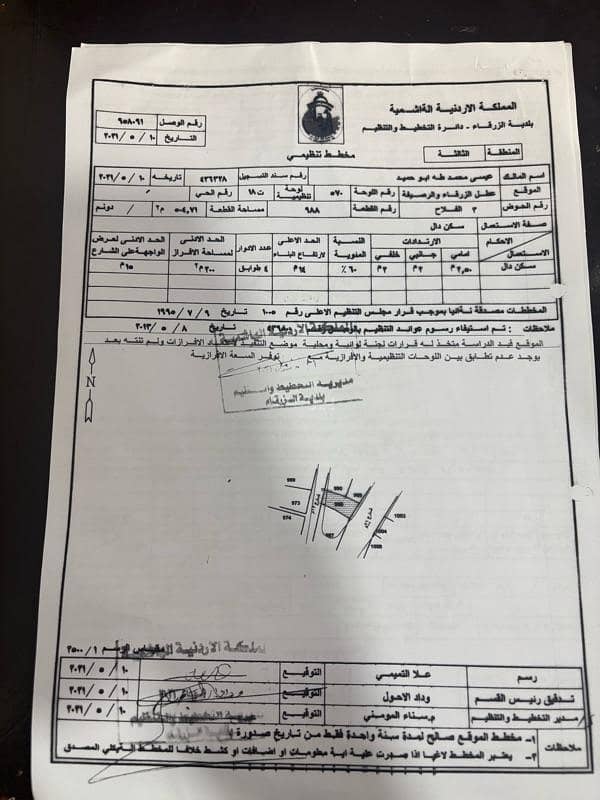 المملكة الاردنية الهاشمية
بلدية الزرقاء - دائرة التخطيط والتنظيم
رقم الوصل ٩٥٨٠٩١
التاريخ ١٠ / ٥ / ٢٠٢١
المنطقة الثالثة
مخطط تنظيمي
اسم المالك عيسى محمد طه ابو حميد رقم سند التسجيل ٤٣٦٣٢٨ تاريخه ١٠ / ٥ / ٢٠٢١
الموقع عطل الزرقاء والرصيفة رقم اللوحة ٥٧٠ لوحة تنظيمية ت١٨ رقم الحي /
رقم الحوض ٢ الفلاح رقم القطعة ٩٨٨ مساحة القطعة ٥٠٤,٧١ م٢ / دونم
صفة الاستعمال سكن دال
الاحكام الاستعمال
الارتدادات
امامي جانبي خلفي
النسبة المئوية
الحد الاعلى لارتفاع البناء
عدد الادوار
الحد الادنى لمساحة الافراز
الحد الادنى لعرض الواجهة على الشارع
سكن دال ٢,٥٠م ٢م ٢م ٦٠٪ ١٤م ٤ طوابق ٢٠٠م٢ ١٥م
المخططات مصدقة نهائيا بموجب قرار مجلس التنظيم الاعلى رقم ١٠٠٥ تاريخ ٦ / ٧ / ١٩٩٥
ملاحظات : تم استيفاء رسوم عوائد التنظيم تاريخ ٨ / ٥ / ٢٠١٣
الموقع قيد الدراسة متخذ له قرارات لجنة لوائية ومحلية موضع التنفيذ الافرازات ولم تنته بعد
يوجد عدم تطابق بين اللوحات التنظيمية والافرازية مع توفير السعة الافرازية
مديرية التخطيط والتنظيم
بلدية الزرقاء
N
973
974
987
1003
1004
مقياس الرسم ١ / ٢٥٠٠
رسم علا التميمي التوقيع ١٠ / ٥ / ٢٠٢١
تدقيق رئيس القسم وداد الاحول التوقيع ١٠ / ٥ / ٢٠٢١
مدير التخطيط والتنظيم م.سناء المومني التوقيع ١٠ / ٥ / ٢٠٢١
ملاحظات
١- مخطط الموقع صالح لمدة سنة واحدة فقط من تاريخ صدوره
٢- يعتبر المخطط لاغيا اذا جرت عليه اية معلومات او اضافات او كشط خلافا للمخطط الاصلي المصدق